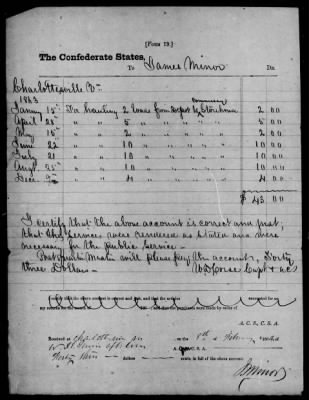 [FORM 19.]
The Confederate States,
To James Minor Dr.
Charlottesville Va
1863
Jany 15th For hauling 2 loads from Depot to Commissary Storehouse 2 00
April 28 " " 5 " " " " " 5 00
May 15th " " 2 " " " " " 2 00
June 22 " " 10 " " " " " 10 00
July 21 " " 10 " " " " " 10 00
Augt 25th " " 10 " " " " " 10 00
Dec 9th " " 4 " " " " " 4 00
$ 43 00
I certify that the above account is correct and just,
that the services were rendered as stated and were
necessary for the public service.
Post Quarter Master will please pay the account, Forty
three Dollars. Capt & ACS
I certify that the above account is correct and
my returns for the
A. C. S., C. S. A.
Received at Charlottesville on the 8th of
Forty three dollars cents, in full of the above account.
Minor